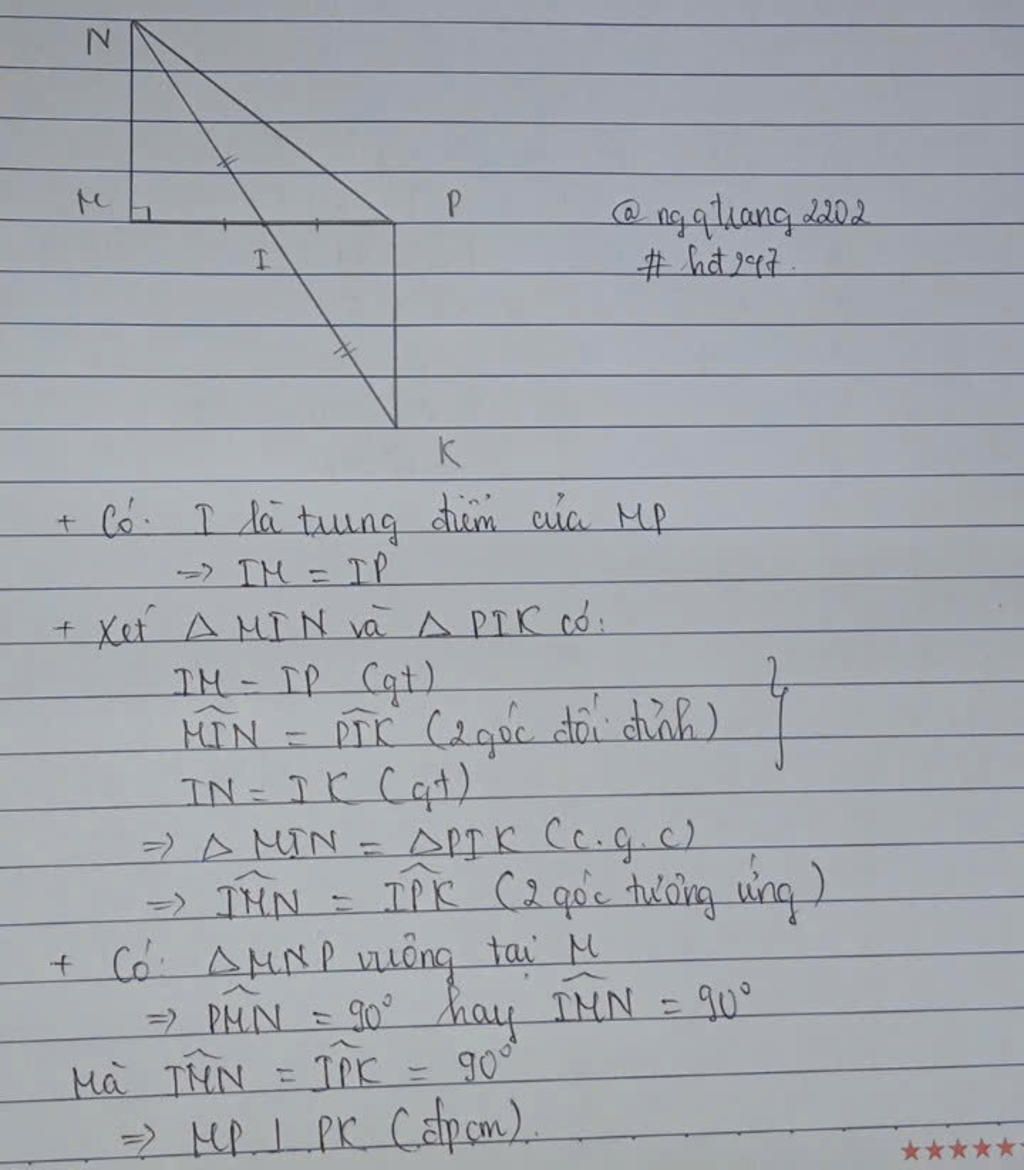 N
M
P
I
K
@ngqtrang2202
# hđ247.
+ Có: I là trung điểm của MP
=> IM = IP
+ Xét Δ MIN và Δ PIK có:
IM = IP (gt)
MIN = PIK (2 góc đối đỉnh)
IN = IK (gt)
=> Δ MIN = ΔPIK (c.g.c)
=> IMN = IPK (2 góc tương ứng)
+ Có: ΔMNP vuông tại M
=> PMN = 90° hay IMN = 90°
Mà IMN = IPK = 90°
=> MP ⊥ PK (đpcm).